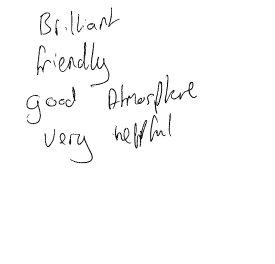 Brilliant
friendly
good Atmosphere
very helpful